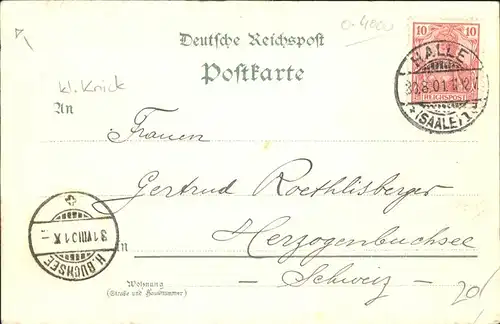 0-4000
Deutsche Reichspost
Postkarte
10 10
REICHSPOST
HALLE
8.01
(SAALE) 1
kl. Knick
An
Frauen
Gertrud Roethlisberger
in Herzogenbuchsee
- Schweiz -
31 VIII 01 X -
H. BUCHSEE
Wohnung
(Straße und Hausnummer)
20